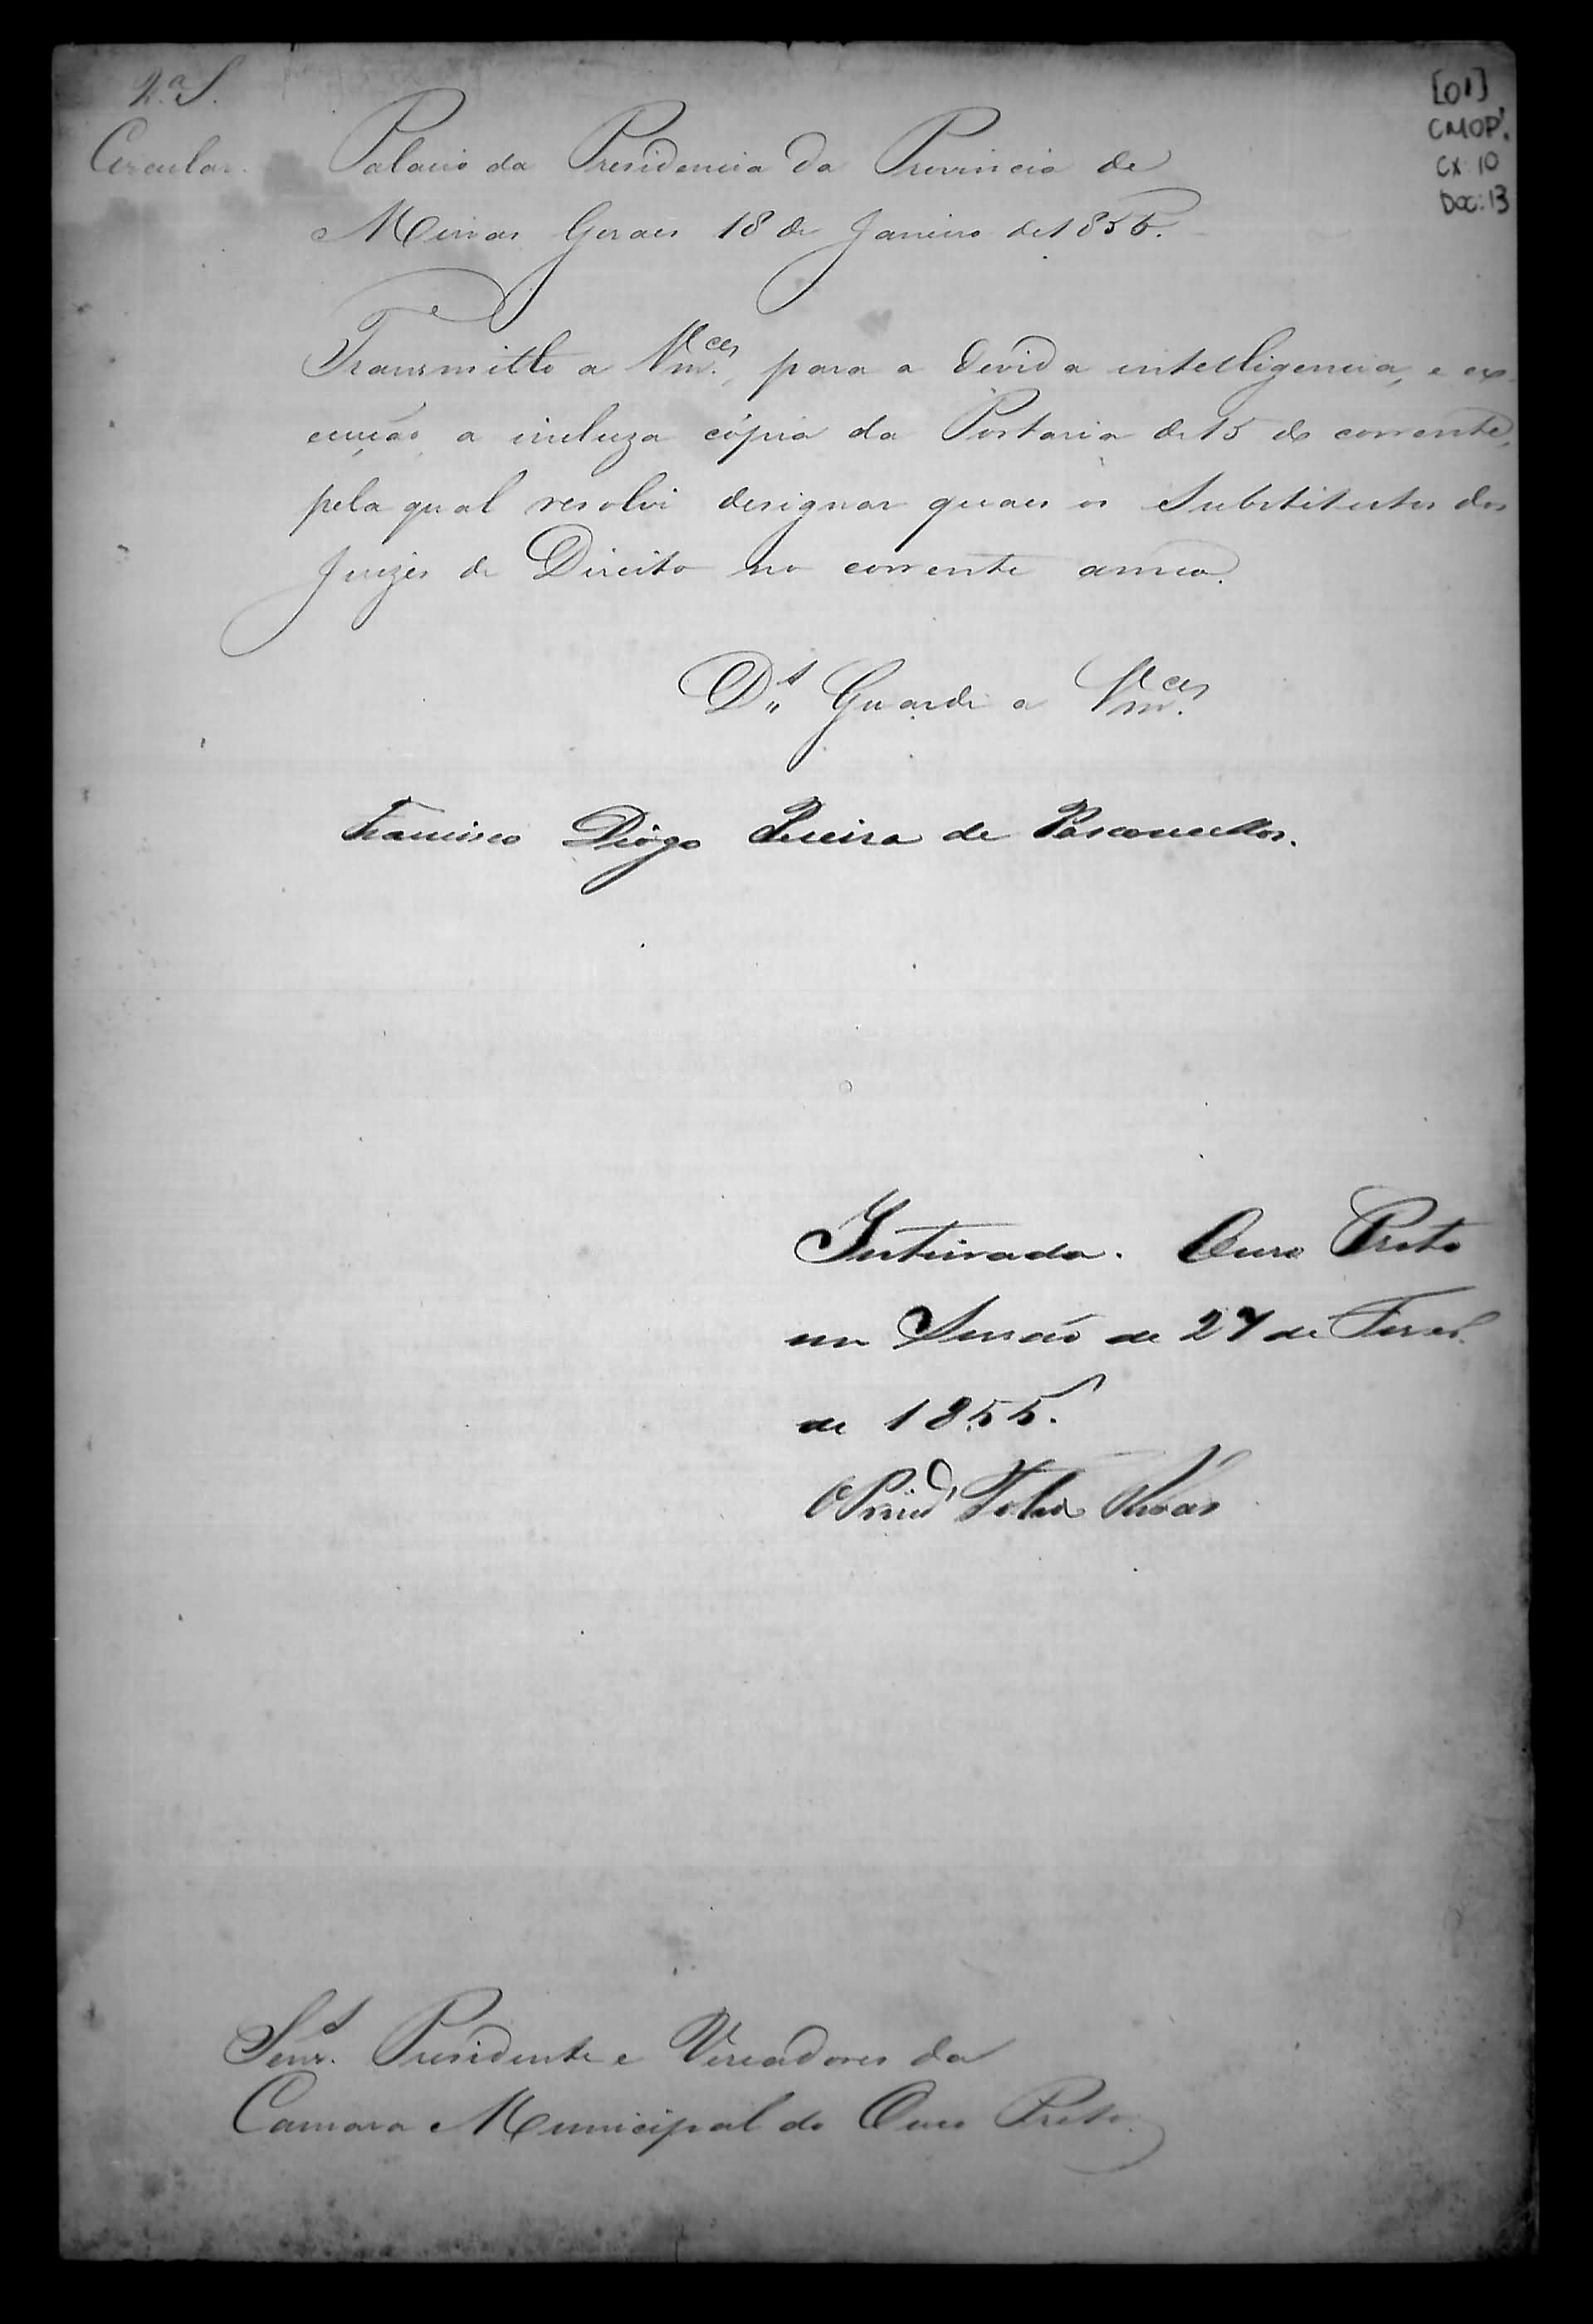 2.ª S.
Circular.
[01]
CMOP.
CX: 10
DOC: 13
Palacio da Presidencia da Provincia de
Minas Geraes 18 de Janeiro de 1855.
Transmitto a Vm.ces, para a devida intelligencia, e ex-
ecução, a incluza cópia da Portaria de 15 do corrente,
pela qual resolvi designar quaes os Substitutos dos
Juizes de Direito no corrente anno.
D.s Guarde a Vm.ces
Francisco Diogo Pereira de Vasconcellos.
Inteirada. Ouro Preto
em Sessão de 27 de Fever.
de 1855.
O Prizid
Senr.s Presidente e Vereadores da
Camara Municipal do Ouro Preto.